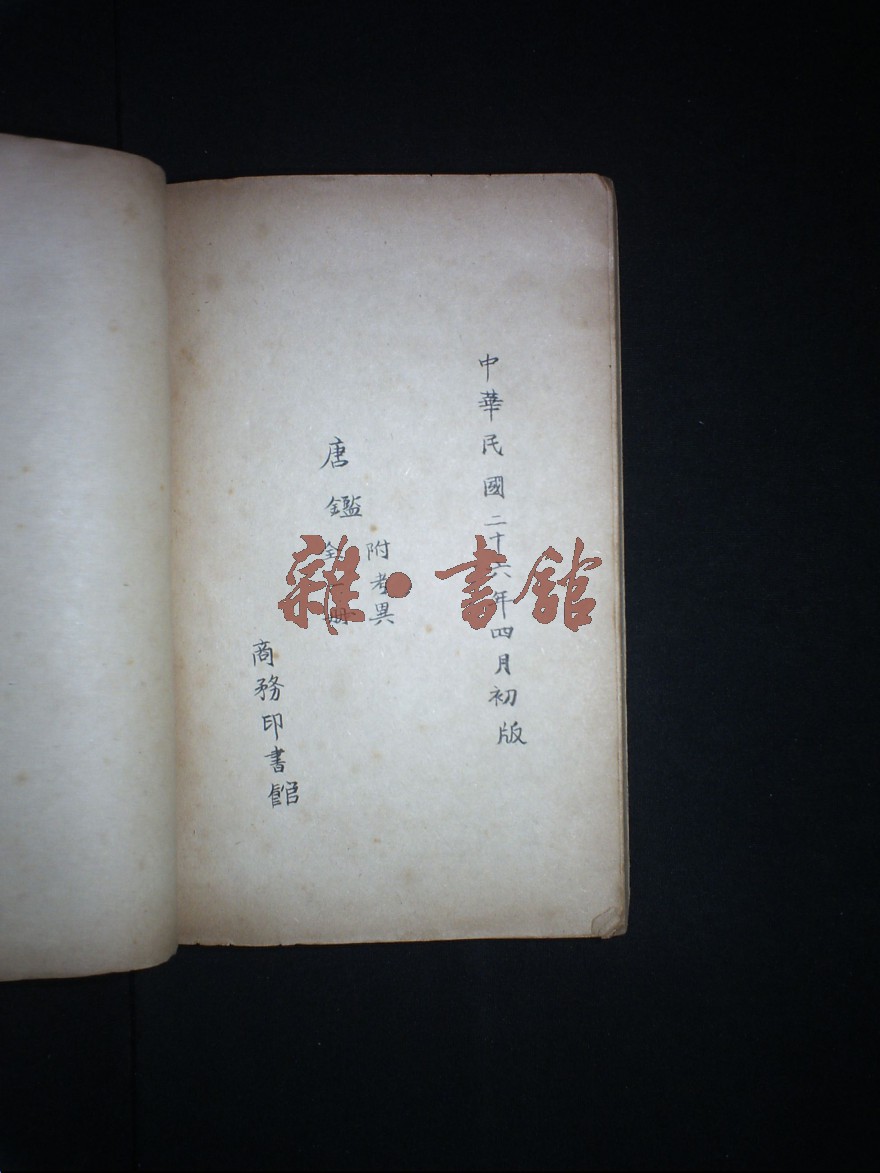 中華民國二十六年四月初版
唐鑑
附考異
商務印書館
雜·書館